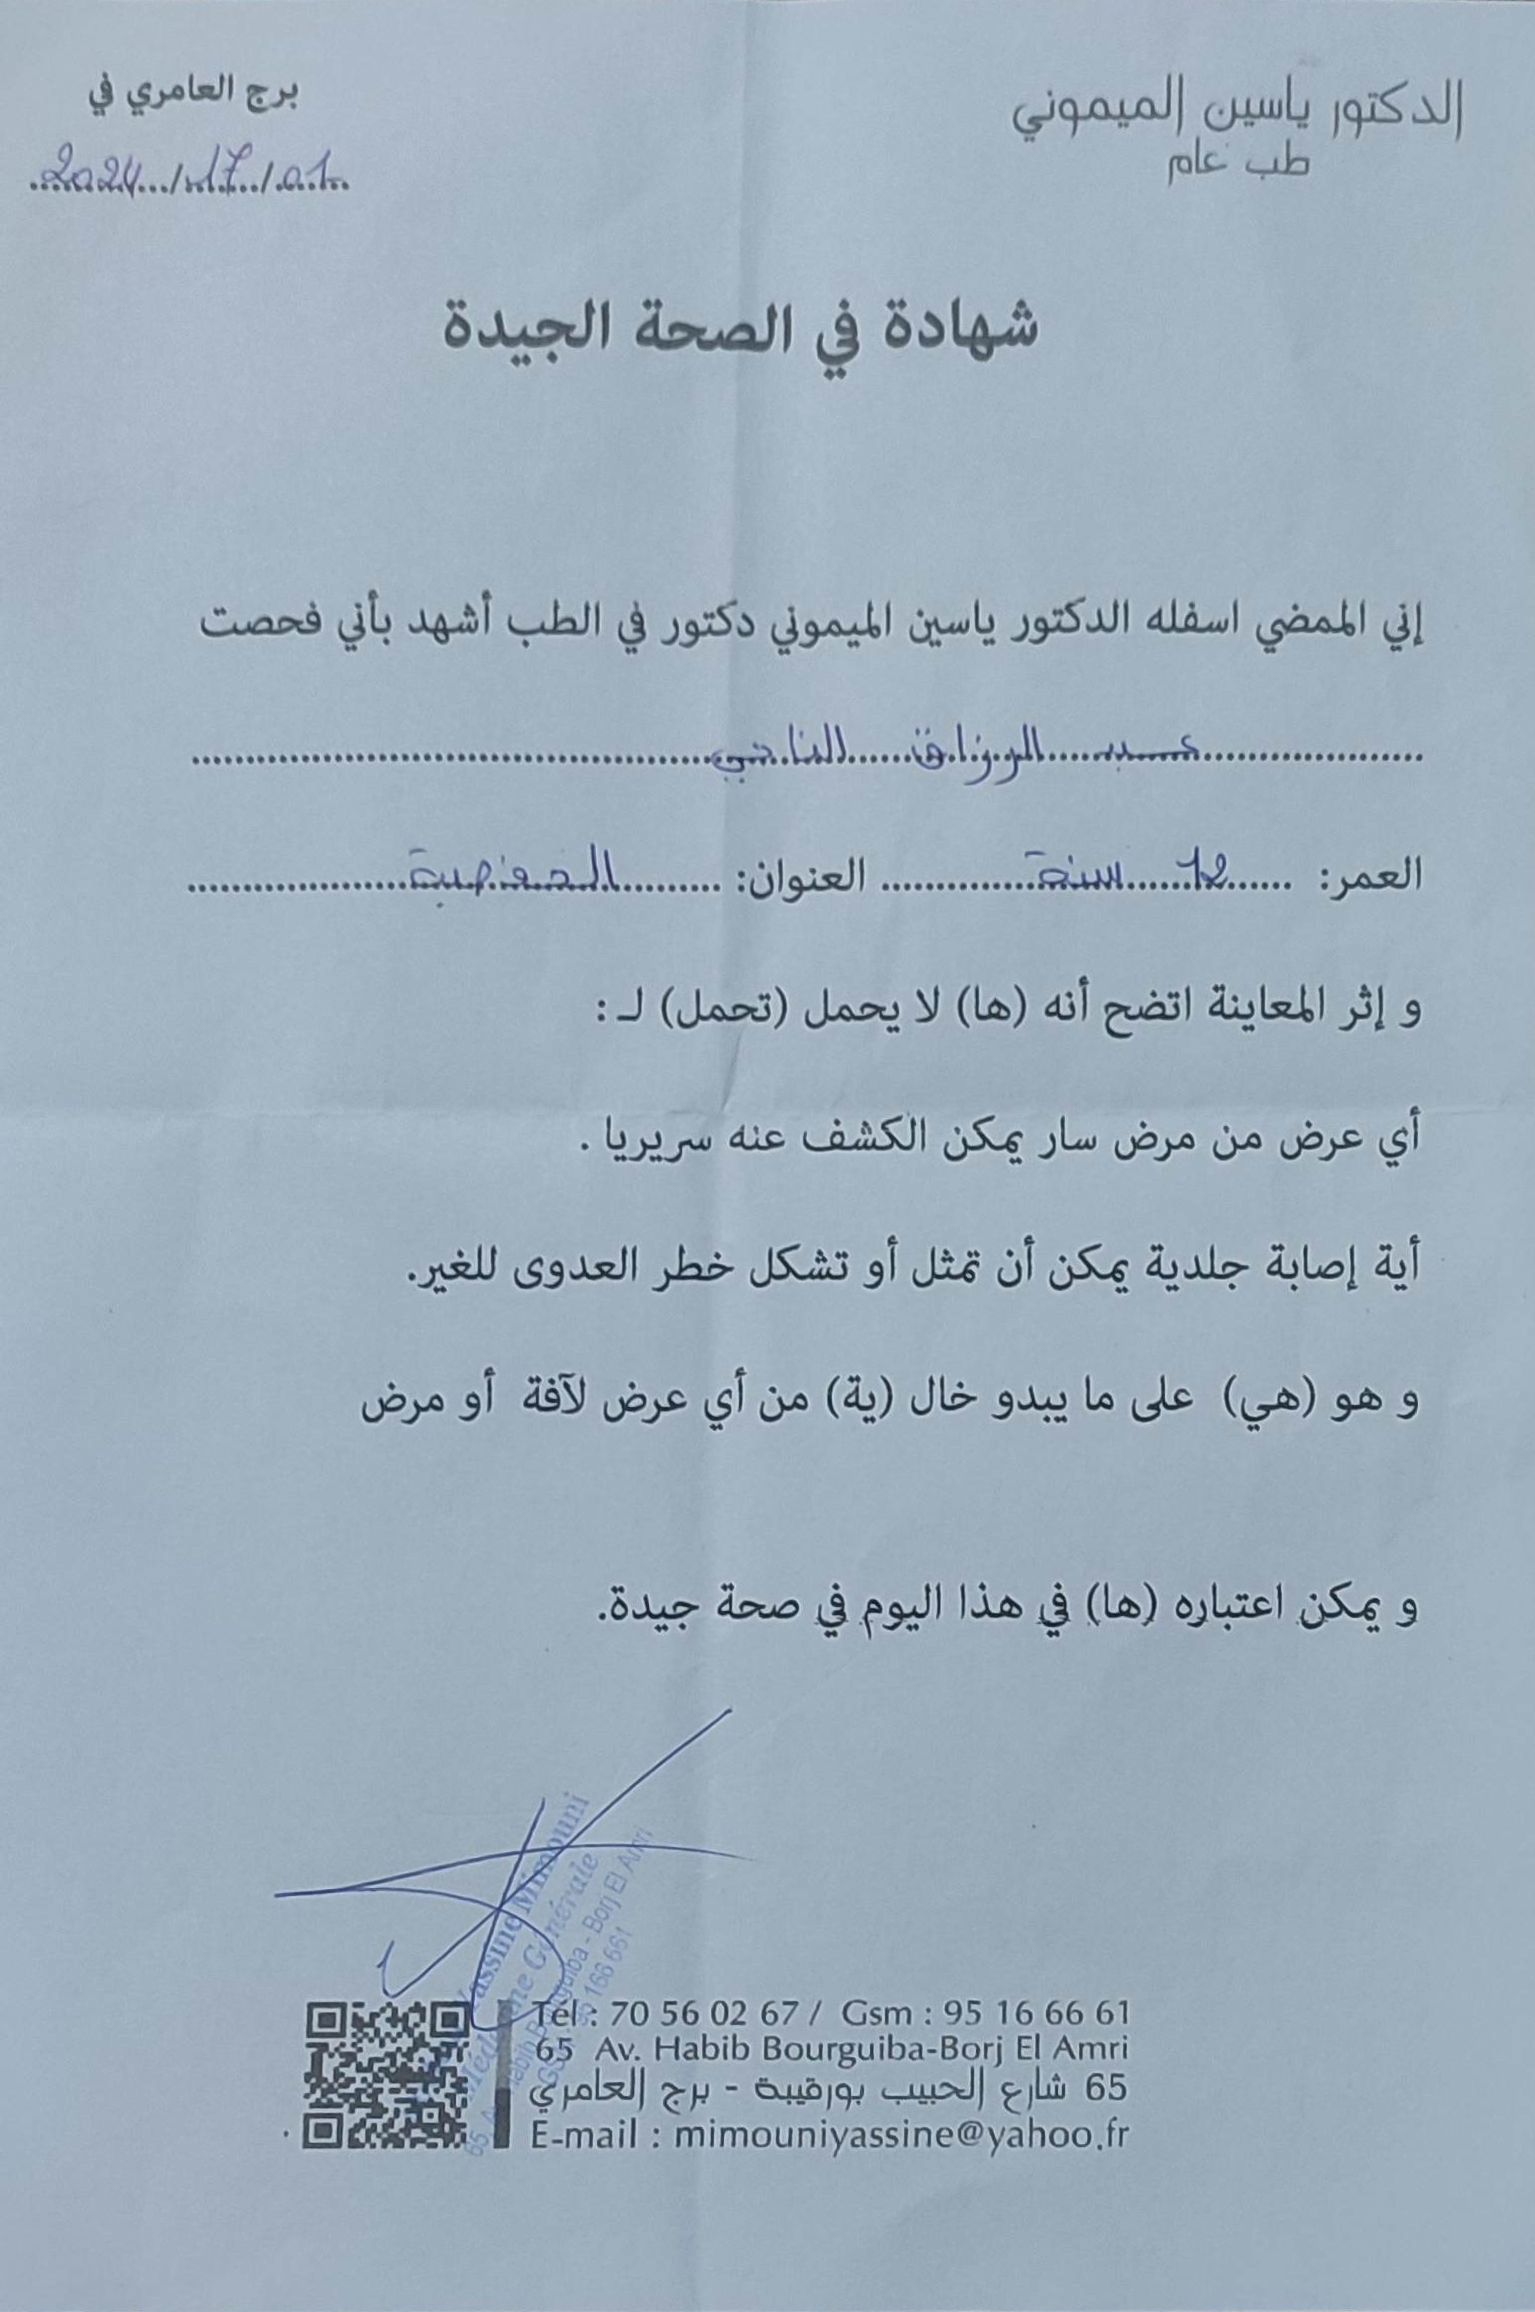 الدكتور ياسين الميموني
طب عام
برج العامري في
2024/17/01
شهادة في الصحة الجيدة
إني الممضي اسفله الدكتور ياسين الميموني دكتور في الطب أشهد بأني فحصت
عبد الرزاق
العمر: 12 سنة العنوان:
و إثر المعاينة اتضح أنه (ها) لا يحمل (تحمل) لـ :
أي عرض من مرض سار يمكن الكشف عنه سريريا .
أية إصابة جلدية يمكن أن تمثل أو تشكل خطر العدوى للغير.
و هو (هي) على ما يبدو خال (ية) من أي عرض لآفة أو مرض
و يمكن اعتباره (ها) في هذا اليوم في صحة جيدة.
Yassine Mimouni
Médecine Générale
65, Av. Habib Bourguiba - Borj El Amri
GSM : 95 166 661
Tél : 70 56 02 67 / Gsm : 95 16 66 61
65 Av. Habib Bourguiba-Borj El Amri
65 شارع الحبيب بورقيبة - برج العامري
E-mail : mimouniyassine@yahoo.fr